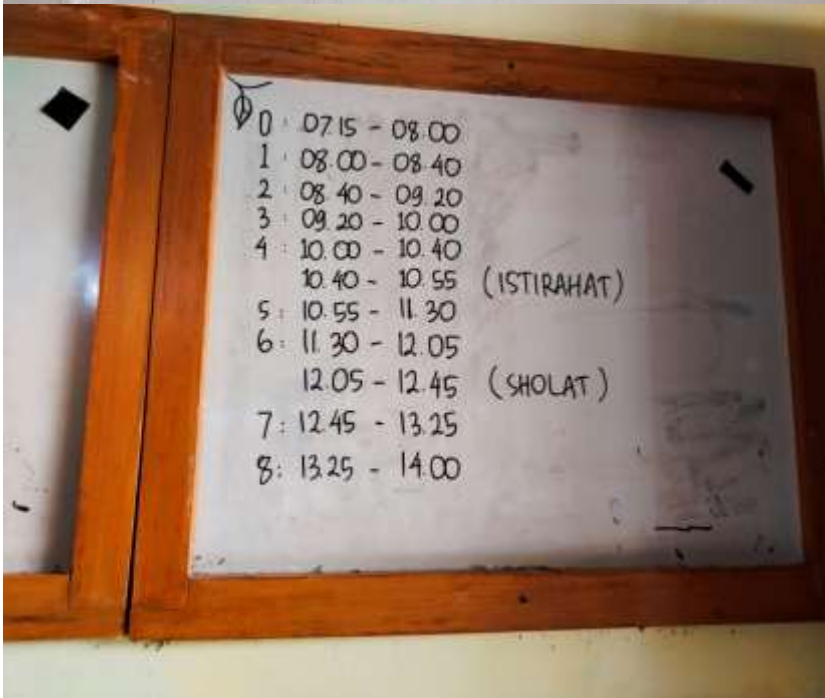 0 : 07.15 - 08.00
1 : 08.00 - 08.40
2 : 08.40 - 09.20
3 : 09.20 - 10.00
4 : 10.00 - 10.40
10.40 - 10.55 (ISTIRAHAT)
5 : 10.55 - 11.30
6 : 11.30 - 12.05
12.05 - 12.45 (SHOLAT)
7 : 12.45 - 13.25
8 : 13.25 - 14.00